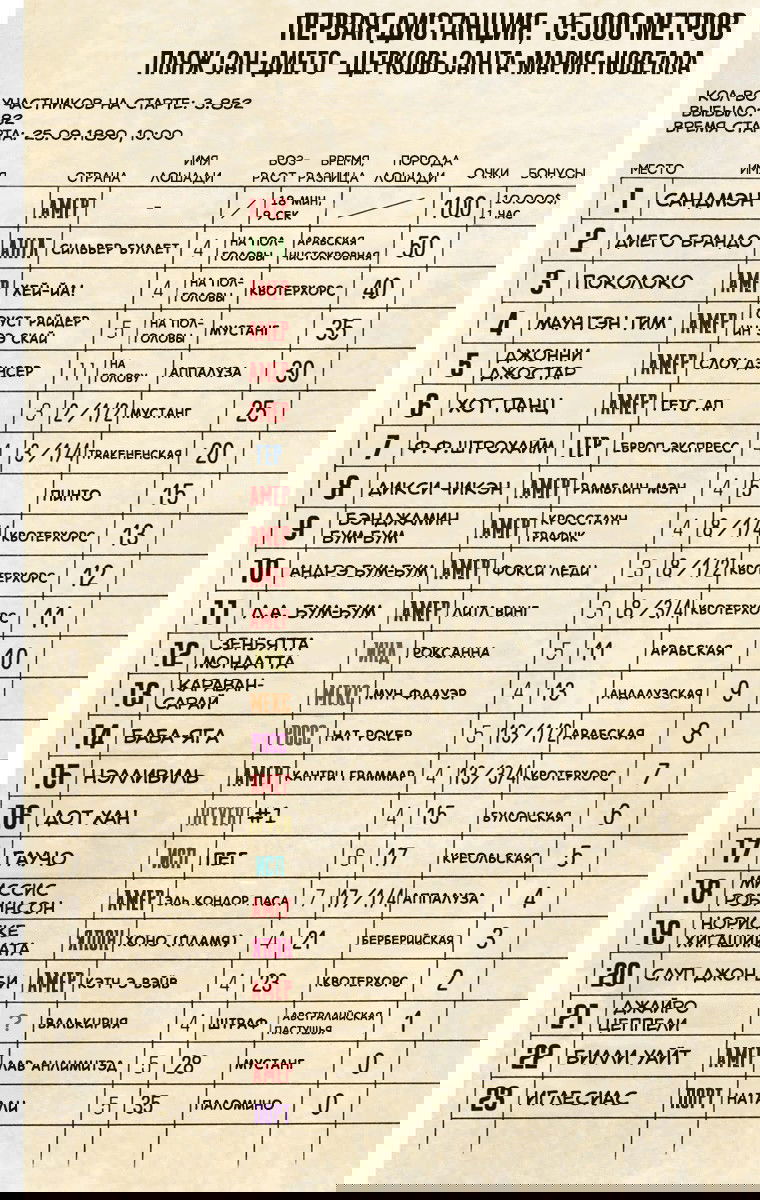 ПЕРВАЯ ДИСТАНЦИЯ; 15.000 МЕТРОВ
ПЛЯЖ САН-ДИЕГО - ЦЕРКОВЬ САНТА-МАРИЯ-НОВЕЛЛА
КОЛ-ВО
УЧАСТНИКОВ НА СТАРТЕ: 3.852
ВЫБЫЛО:
92
ВРЕМЯ СТАР
ТА: 25.09.1890, 10:00
СТРАНА ИМЯ ЛОШАДИ ВОЗРАСТ ВРЕМЯ РАЗНИЦА ПОРОДА ЛОШАДИ ОЧКИ БОНУСЫ МЕСТО ИМЯ
АМЕР - / 100 1 ЧАС 1 САНДМЭН
АНГЛ СИЛЬВЕР БУЛЛЕТ 4 НА ПОЛ-ГОЛОВЫ АРАБСКАЯ ЧИСТОКРОВНАЯ 50 2 ДИЕГО БРАНДО
ХЕЙ-ЙА! 4 НА ПОЛ-ГОЛОВЫ КВОТЕРХОРС 40 3 ПОКОЛОКО АМЕР
РАЙДЕР Э СКАЙ 5 НА ПОЛ-ГОЛОВЫ МУСТАНГ 35 4 МАУНТЭН ТИМ АМЕР
ДЭНСЕР 11 НА ГОЛОВУ АППАЛУЗА 30 5 ДЖОННИ ДЖОСТАР АМЕР СЛОУ
3 2/1/2 МУСТАНГ 25 6 ХОТ ПАНЦ АМЕР ГЕТС АП
3/1/4 ТРАКЕНЕНСКАЯ 20 7 Ф.Ф.ШТРОХАЙМ ГЕР ЕВРОП ЭКСПРЕСС
ПИНТО 15 8 ДИКСИ ЧИКЭН АМЕР РАМБЛИН МЭН 4 5
КВОТЕРХОРС 13 9 БЭНДЖАМИН БУМ-БУМ АМЕР КРОССТАУН ТРАФИК 4 8/1/4
КВОТЕРХОРС 12 10 АНДРЭ БУМ-БУМ АМЕР ФОКСИ ЛЕДИ 3 8/1/2
11 11 Л.А. БУМ-БУМ АМЕР ЛИТЛ ВИНГ 3 8/3/4 КВОТЕРХОРС
10 12 ЗЕНЬЯТТА МОНДАТТА ИНД РОКСАННА 5 11 АРАБСКАЯ
13 КАРАВАН-САРАЙ МЕКС МУН ФЛАУЭР 4 13 АНДАЛУЗСКАЯ 9
14 БАБА-ЯГА РОСС НАТ РОКЕР 5 13/1/2 АРАБСКАЯ 8
15 НЭЛЛИВИЛЬ АМЕР КАНТРИ ГРАММАР 4 13/3/4 КВОТЕРХОРС 7
16 ДОТ ХАН #1 4 15 БУЛОНСКАЯ 6
17 ГАУЧО ИСП ПЕГ 6 17 КРЕОЛЬСКАЯ 5
18 МИССИС РОБИНСОН АМЕР ЭЛЬ КОНДОР ПАСА 7 17/1/4 АППАЛУЗА 4
19 НОРИСКЕ ХИГАШИКАТА ЯПОН ХОНО (ПЛАМЯ) 4 21 БЕРБЕРИЙСКАЯ 3
АМЕР КЭТЧ Э ВЭЙВ 4 23 КВОТЕРХОРС 2 20 СЛУП ДЖОН
? ВАЛЬКИРИЯ 4 ШТРАФ АВСТРАЛИЙСКАЯ ПАСТУШЬЯ 1 21 ДЖАЙРО ЦЕППЕЛИ
ЛАВ АНЛИМИТЭД 5 28 МУСТАНГ 0 22 БИЛЛИ УАЙТ АМЕР
5 35 ПАЛОМИНО 0 23 ИГЛЕСИАС ПОРТ НАТАЛИ